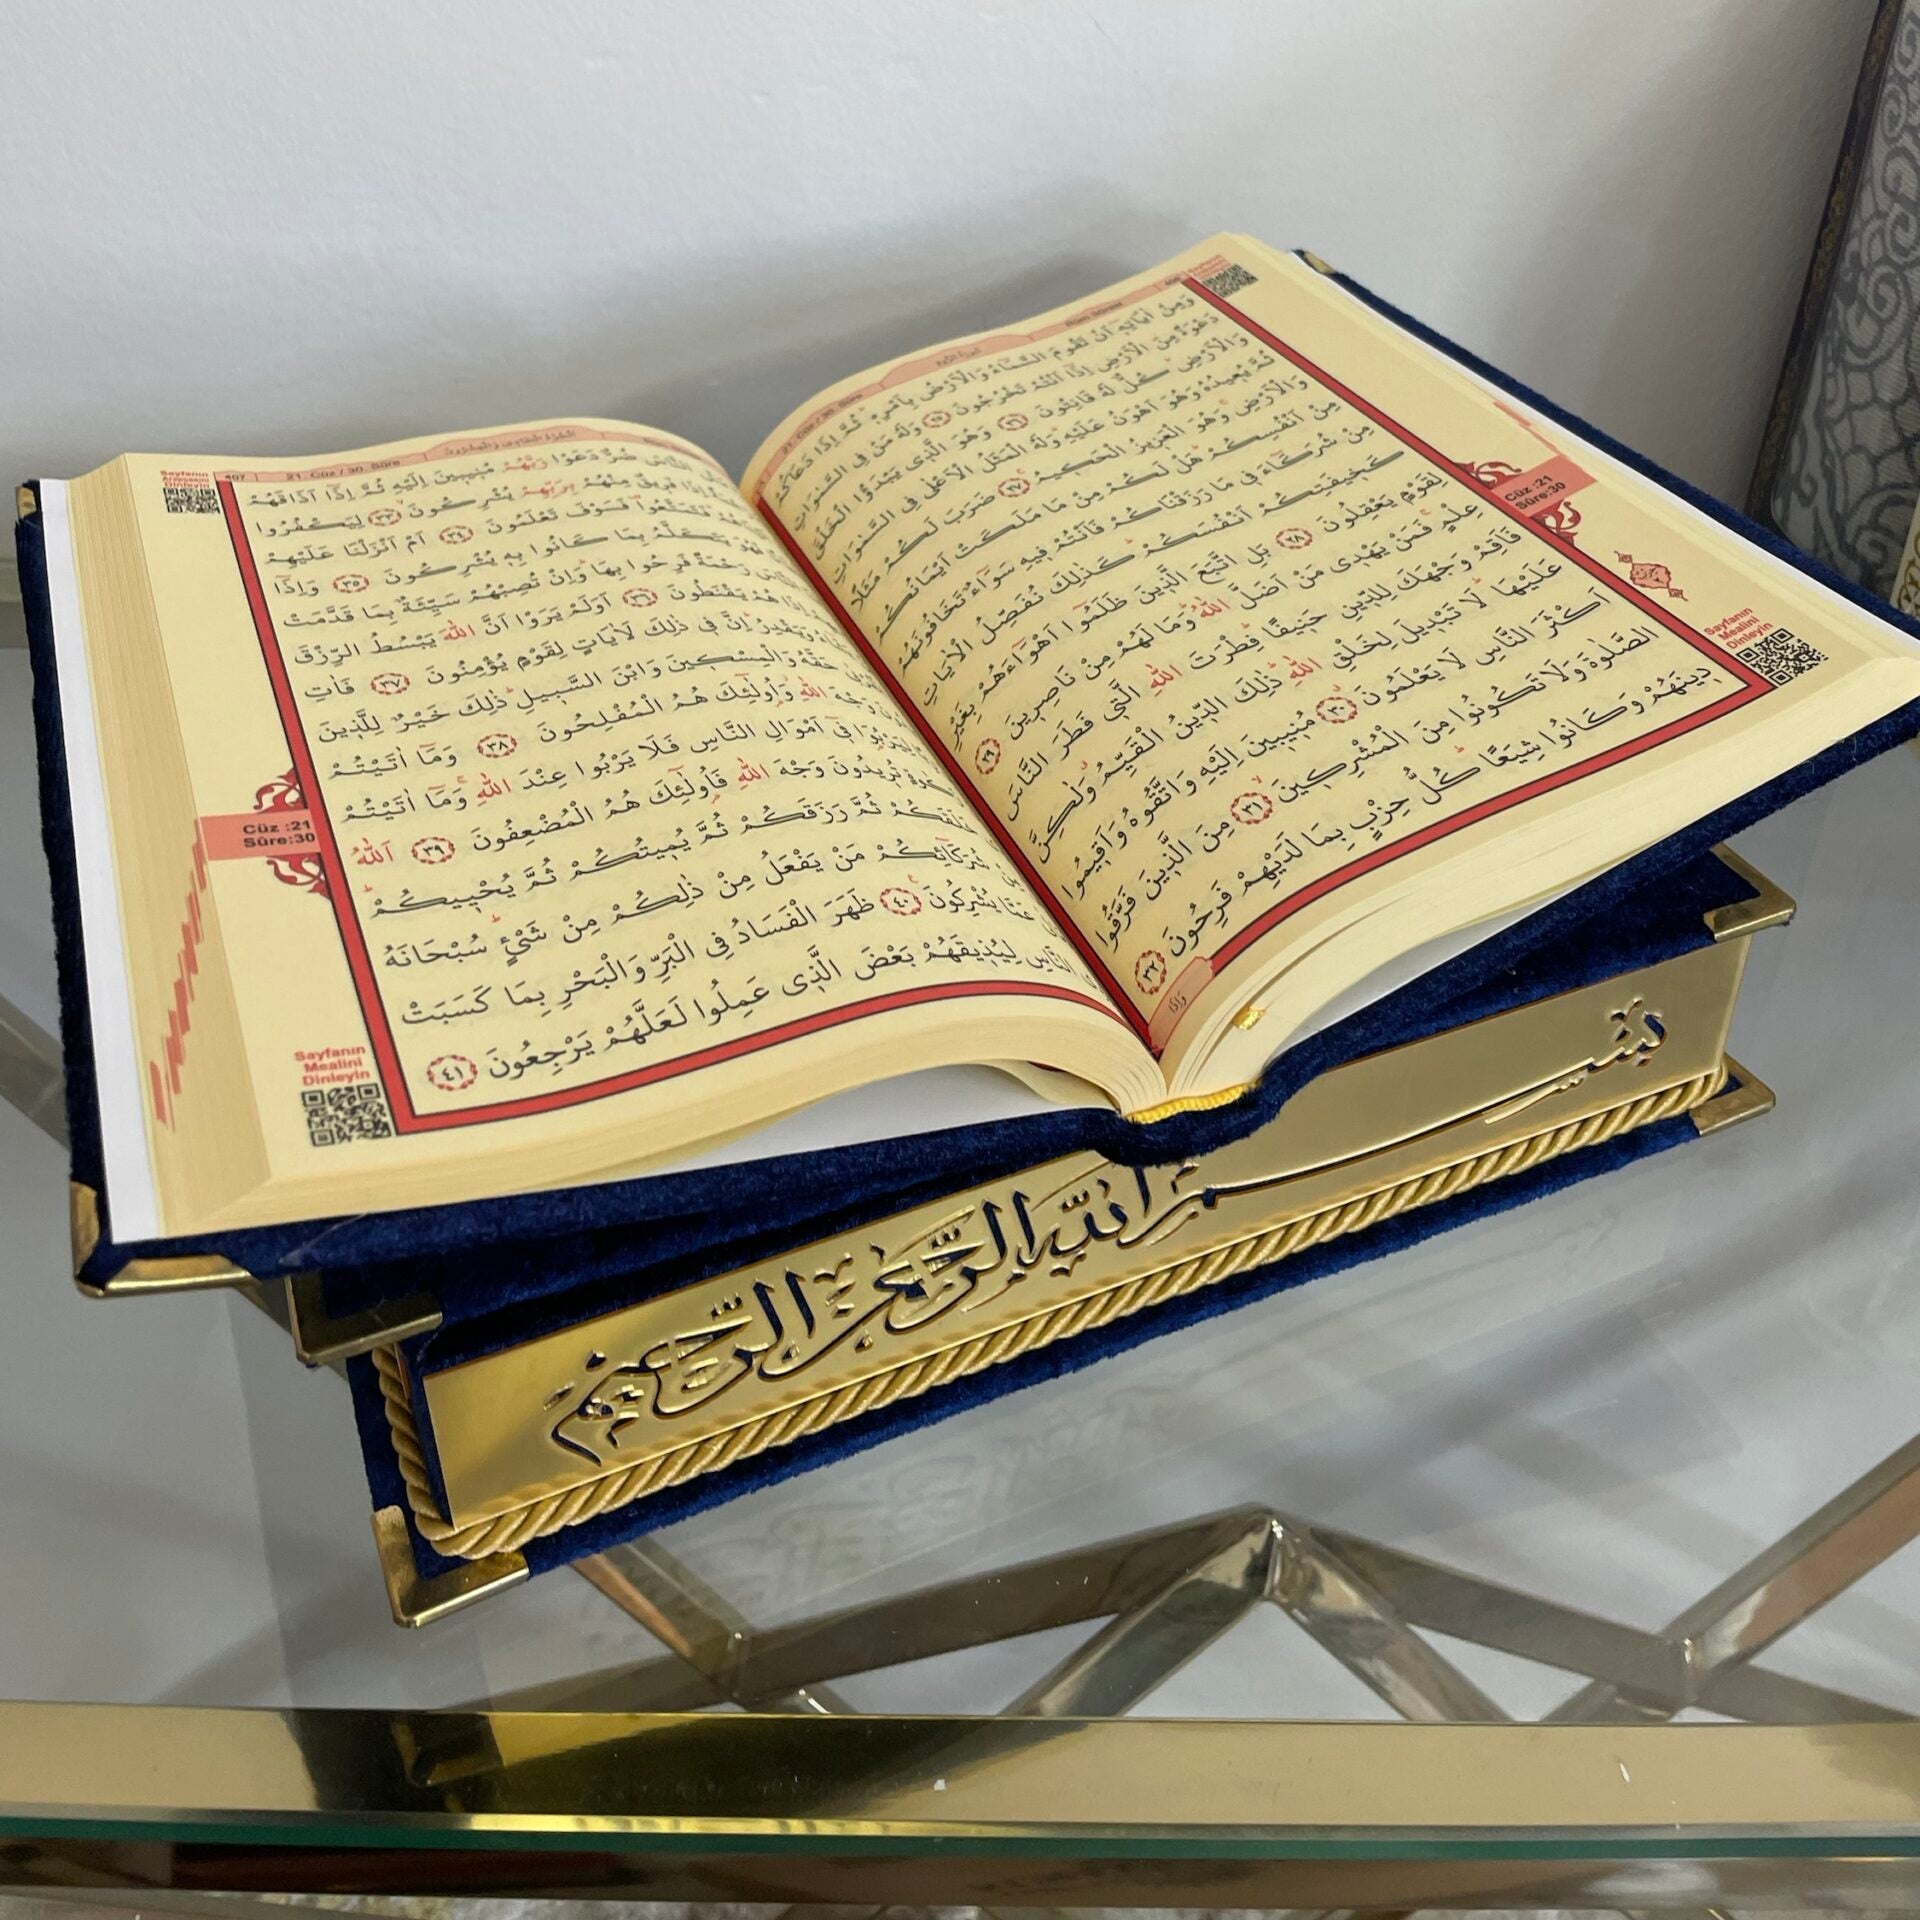 سُورَةُ الرُّومِ
21. Cüz / 30. Sûre
وَمِنْ اٰيَاتِهٖٓ اَنْ تَقُومَ السَّمَٓاءُ وَالْاَرْضُ بِاَمْرِهٖ ثُمَّ اِذَا دَعَاكُمْ
دَعْوَةً مِنَ الْاَرْضِ اِذَٓا اَنْتُمْ تَخْرُجُونَ ﴿٢٥﴾ وَلَهُ مَنْ فِي السَّمٰوَاتِ
وَالْاَرْضِ كُلٌّ لَهُ قَانِتُونَ ﴿٢٦﴾ وَهُوَ الَّذٖي يَبْدَؤُا الْخَلْقَ
ثُمَّ يُعٖيدُهُ وَهُوَ اَهْوَنُ عَلَيْهِ وَلَهُ الْمَثَلُ الْاَعْلٰى فِي السَّمٰوَاتِ
وَالْاَرْضِ وَهُوَ الْعَزٖيزُ الْحَكٖيمُ ﴿٢٧﴾ ضَرَبَ لَكُمْ مَثَلًا
مِنْ اَنْفُسِكُمْ هَلْ لَكُمْ مِنْ مَا مَلَكَتْ اَيْمَانُكُمْ
مِنْ شُرَكَٓاءَ فٖي مَا رَزَقْنَاكُمْ فَاَنْتُمْ فٖيهِ سَوَٓاءٌ تَخَافُونَهُمْ
كَخٖيفَتِكُمْ اَنْفُسَكُمْ كَذٰلِكَ نُفَصِّلُ الْاٰيَاتِ
لِقَوْمٍ يَعْقِلُونَ ﴿٢٨﴾ بَلِ اتَّبَعَ الَّذٖينَ ظَلَمُٓوا اَهْوَٓاءَهُمْ بِغَيْرِ
عِلْمٍ فَمَنْ يَهْدٖي مَنْ اَضَلَّ اللّٰهُ وَمَا لَهُمْ مِنْ نَاصِرٖينَ ﴿٢٩﴾
فَاَقِمْ وَجْهَكَ لِلدّٖينِ حَنٖيفًا فِطْرَتَ اللّٰهِ الَّتٖي فَطَرَ النَّاسَ
عَلَيْهَا لَا تَبْدٖيلَ لِخَلْقِ اللّٰهِ ذٰلِكَ الدّٖينُ الْقَيِّمُ وَلٰكِنَّ
اَكْثَرَ النَّاسِ لَا يَعْلَمُونَ ﴿٣٠﴾ مُنٖيبٖينَ اِلَيْهِ وَاتَّقُوهُ وَاَقٖيمُوا
الصَّلٰوةَ وَلَا تَكُونُوا مِنَ الْمُشْرِكٖينَ ﴿٣١﴾ مِنَ الَّذٖينَ فَرَّقُوا
دٖينَهُمْ وَكَانُوا شِيَعًا كُلُّ حِزْبٍ بِمَا لَدَيْهِمْ فَرِحُونَ ﴿٣٢﴾
وَاِذَا
Cüz :21
Sûre:30
Sayfanın
Mealini
Dinleyin
407
21. Cüz / 30. Sûre
Sayfanın
Arapçasını
Dinleyin
النَّاسَ ضُرٌّ دَعَوْا رَبَّهُمْ مُنٖيبٖينَ اِلَيْهِ ثُمَّ اِذَٓا اَذَاقَهُمْ
اِذَا فَرٖيقٌ مِنْهُمْ بِرَبِّهِمْ يُشْرِكُونَ ﴿٣٣﴾ لِيَكْفُرُوا
فَتَمَتَّعُوا فَسَوْفَ تَعْلَمُونَ ﴿٣٤﴾ اَمْ اَنْزَلْنَا عَلَيْهِمْ
فَهُوَ يَتَكَلَّمُ بِمَا كَانُوا بِهٖ يُشْرِكُونَ ﴿٣٥﴾ وَاِذَٓا
رَحْمَةً فَرِحُوا بِهَا وَاِنْ تُصِبْهُمْ سَيِّئَةٌ بِمَا قَدَّمَتْ
اِذَا هُمْ يَقْنَطُونَ ﴿٣٦﴾ اَوَلَمْ يَرَوْا اَنَّ اللّٰهَ يَبْسُطُ الرِّزْقَ
وَيَقْدِرُ اِنَّ فٖي ذٰلِكَ لَاٰيَاتٍ لِقَوْمٍ يُؤْمِنُونَ ﴿٣٧﴾ فَاٰتِ
حَقَّهُ وَالْمِسْكٖينَ وَابْنَ السَّبٖيلِ ذٰلِكَ خَيْرٌ لِلَّذٖينَ
وَجْهَ اللّٰهِ وَاُولٰٓئِكَ هُمُ الْمُفْلِحُونَ ﴿٣٨﴾ وَمَٓا اٰتَيْتُمْ
لِيَرْبُوَا فٖٓي اَمْوَالِ النَّاسِ فَلَا يَرْبُوا عِنْدَ اللّٰهِ وَمَٓا اٰتَيْتُمْ
تُرٖيدُونَ وَجْهَ اللّٰهِ فَاُولٰٓئِكَ هُمُ الْمُضْعِفُونَ ﴿٣٩﴾ اَللّٰهُ
خَلَقَكُمْ ثُمَّ رَزَقَكُمْ ثُمَّ يُمٖيتُكُمْ ثُمَّ يُحْيٖيكُمْ
شُرَكَٓائِكُمْ مَنْ يَفْعَلُ مِنْ ذٰلِكُمْ مِنْ شَيْءٍ سُبْحَانَهُ
عَمَّا يُشْرِكُونَ ﴿٤٠﴾ ظَهَرَ الْفَسَادُ فِي الْبَرِّ وَالْبَحْرِ بِمَا كَسَبَتْ
النَّاسِ لِيُذٖيقَهُمْ بَعْضَ الَّذٖي عَمِلُوا لَعَلَّهُمْ يَرْجِعُونَ ﴿٤١﴾
Cüz :21
Sûre:30
Sayfanın
Mealini
Dinleyin
بسم الله الرحمن الرحيم